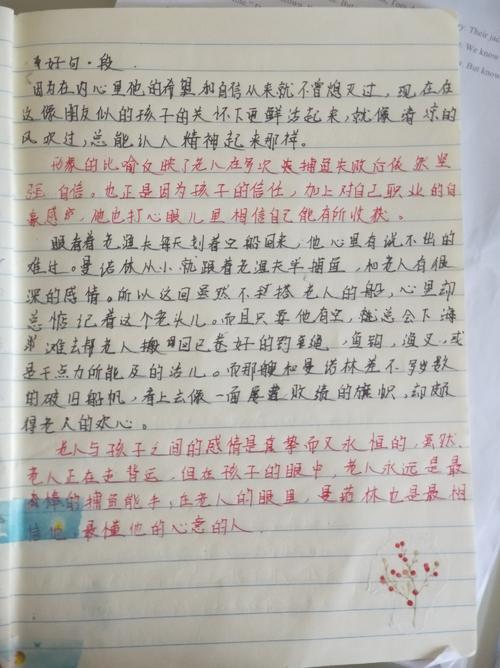 Tom,
ry. Their jac
. We know
. But know
好句·段
因为在内心里他的希望和自信从来就不曾熄灭过,现在在
这像朋友似的孩子的关怀下更鲜活起来,就像清凉的
风吹过,总能让人精神起来那样。
形象的比喻反映了老人在多次出海捕鱼失败后依然坚
强自信。也正是因为孩子的信任,加上对自己职业的自
豪感,他也打心眼儿里相信自己能有所收获。
眼看着老渔夫每天划着空船回来,他心里有说不出的
难过。曼诺林从小就跟着老渔夫学捕鱼,和老人有很
深的感情。所以这回虽然不再搭老人的船,心里却
总惦记着这个老头儿。而且只要他有空,就总会下海
滩去帮老人搬回已卷好的钓线,鱼钩,渔叉,或
是干点力所能及的活儿。而那艘和曼诺林差不多岁数
的破旧船帆,看上去像一面屡遭败绩的旗帜,却颇
得老人的欢心。
老人与孩子之间的感情是真挚而又永恒的,虽然
老人正在走背运,但在孩子的眼中,老人永远是最
棒的捕鱼能手;在老人的眼里,曼诺林也是最相
信他,最懂他的心意的人.